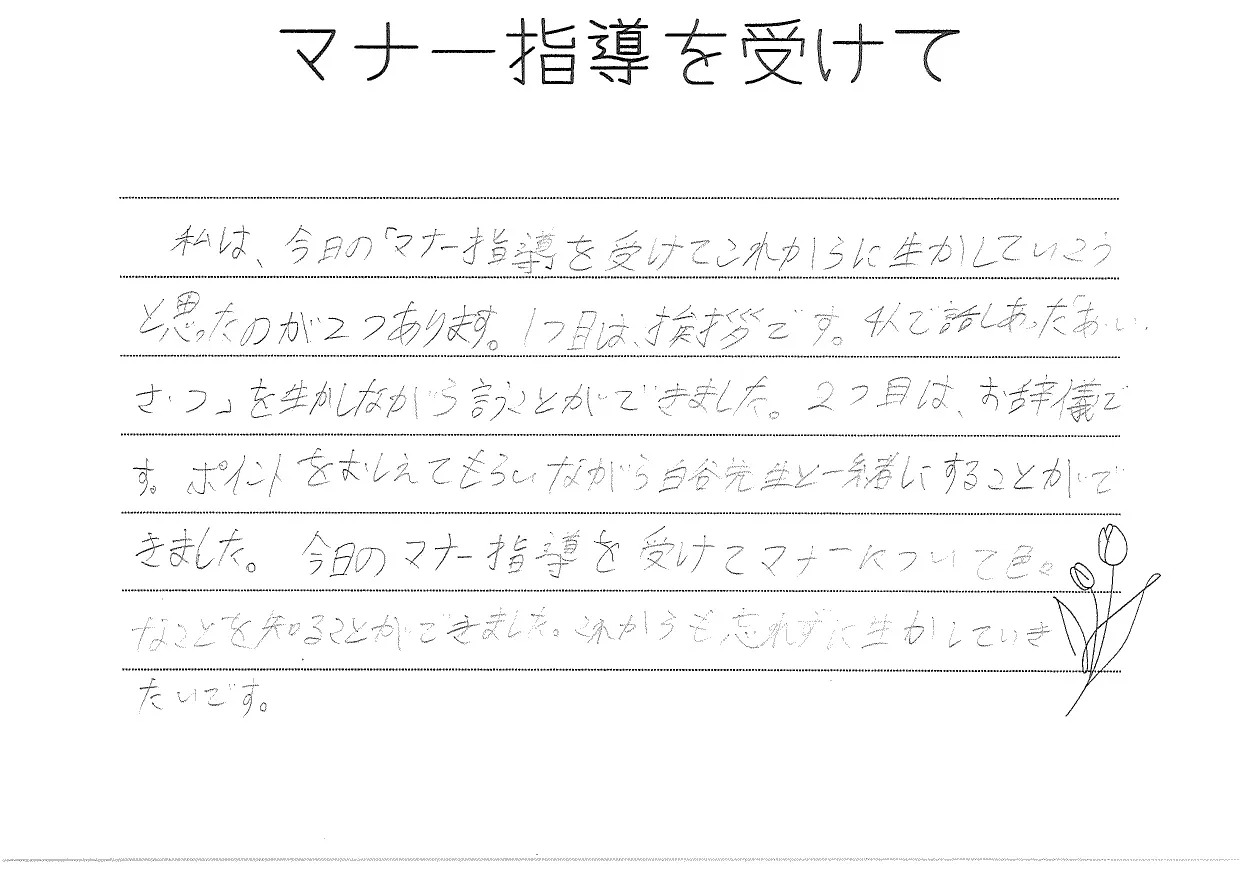 マナー指導を受けて
私は、今日の「マナー指導を受けてこれからに生かしていこう
と思ったのが2つあります。1つ目は、挨拶です。4人で話しあった「あ・い・
さ・つ」を生かしながら言うことができました。2つ目は、お辞儀で
す。ポイントをおしえてもらいながら白谷先生と一緒にすることがで
きました。今日のマナー指導を受けてマナーについて色々
なことを知ることができました。これからも忘れずに生かしていき
たいです。